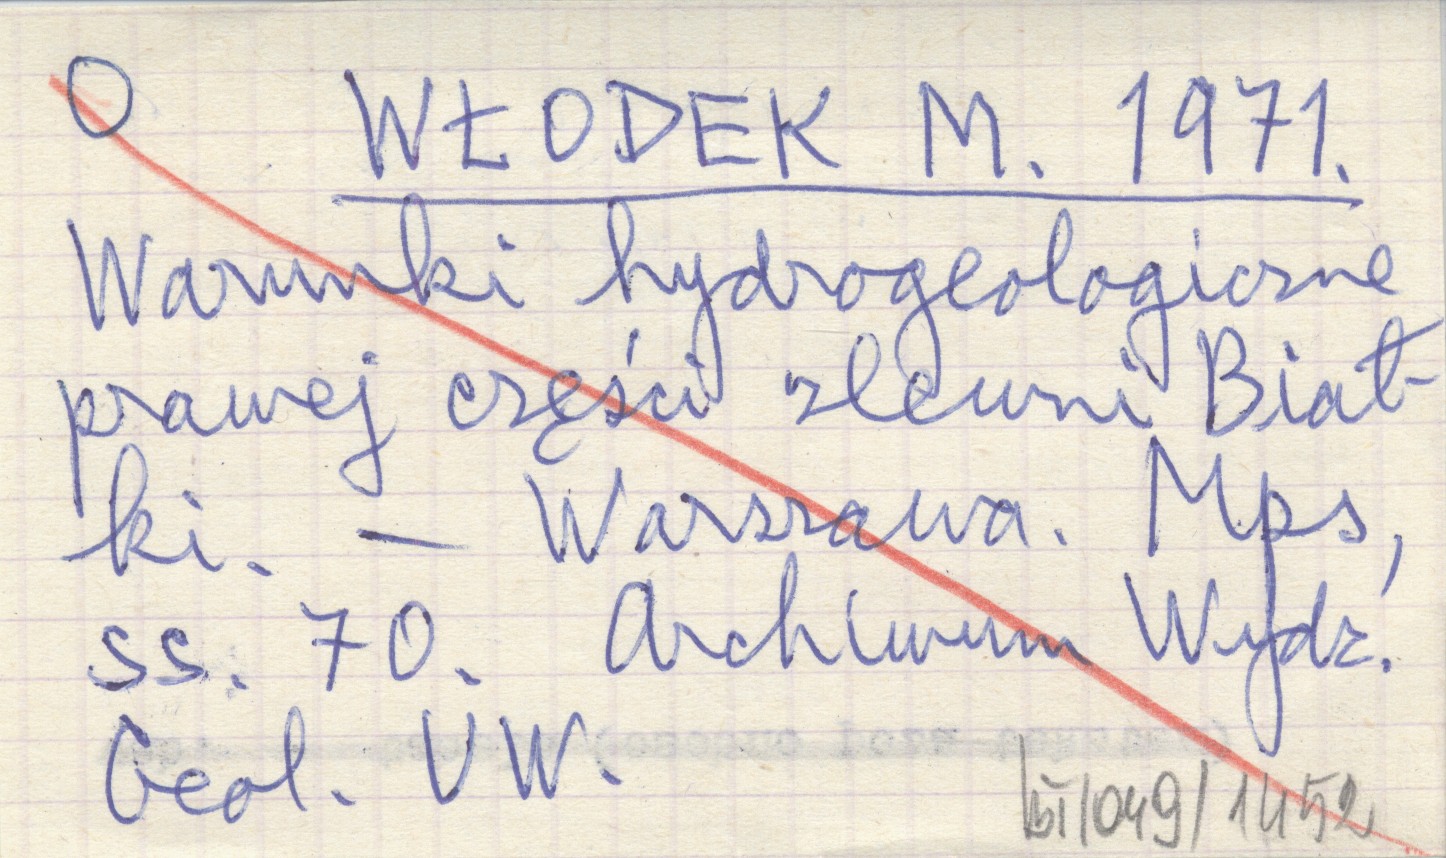 O WŁODEK M. 1971.
Warunki hydrogeologiczne
prawej części zlewni Biał-
ki. — Warszawa. Mps,
ss. 70. Archiwum Wydz.
Geol. UW.
/049/1452